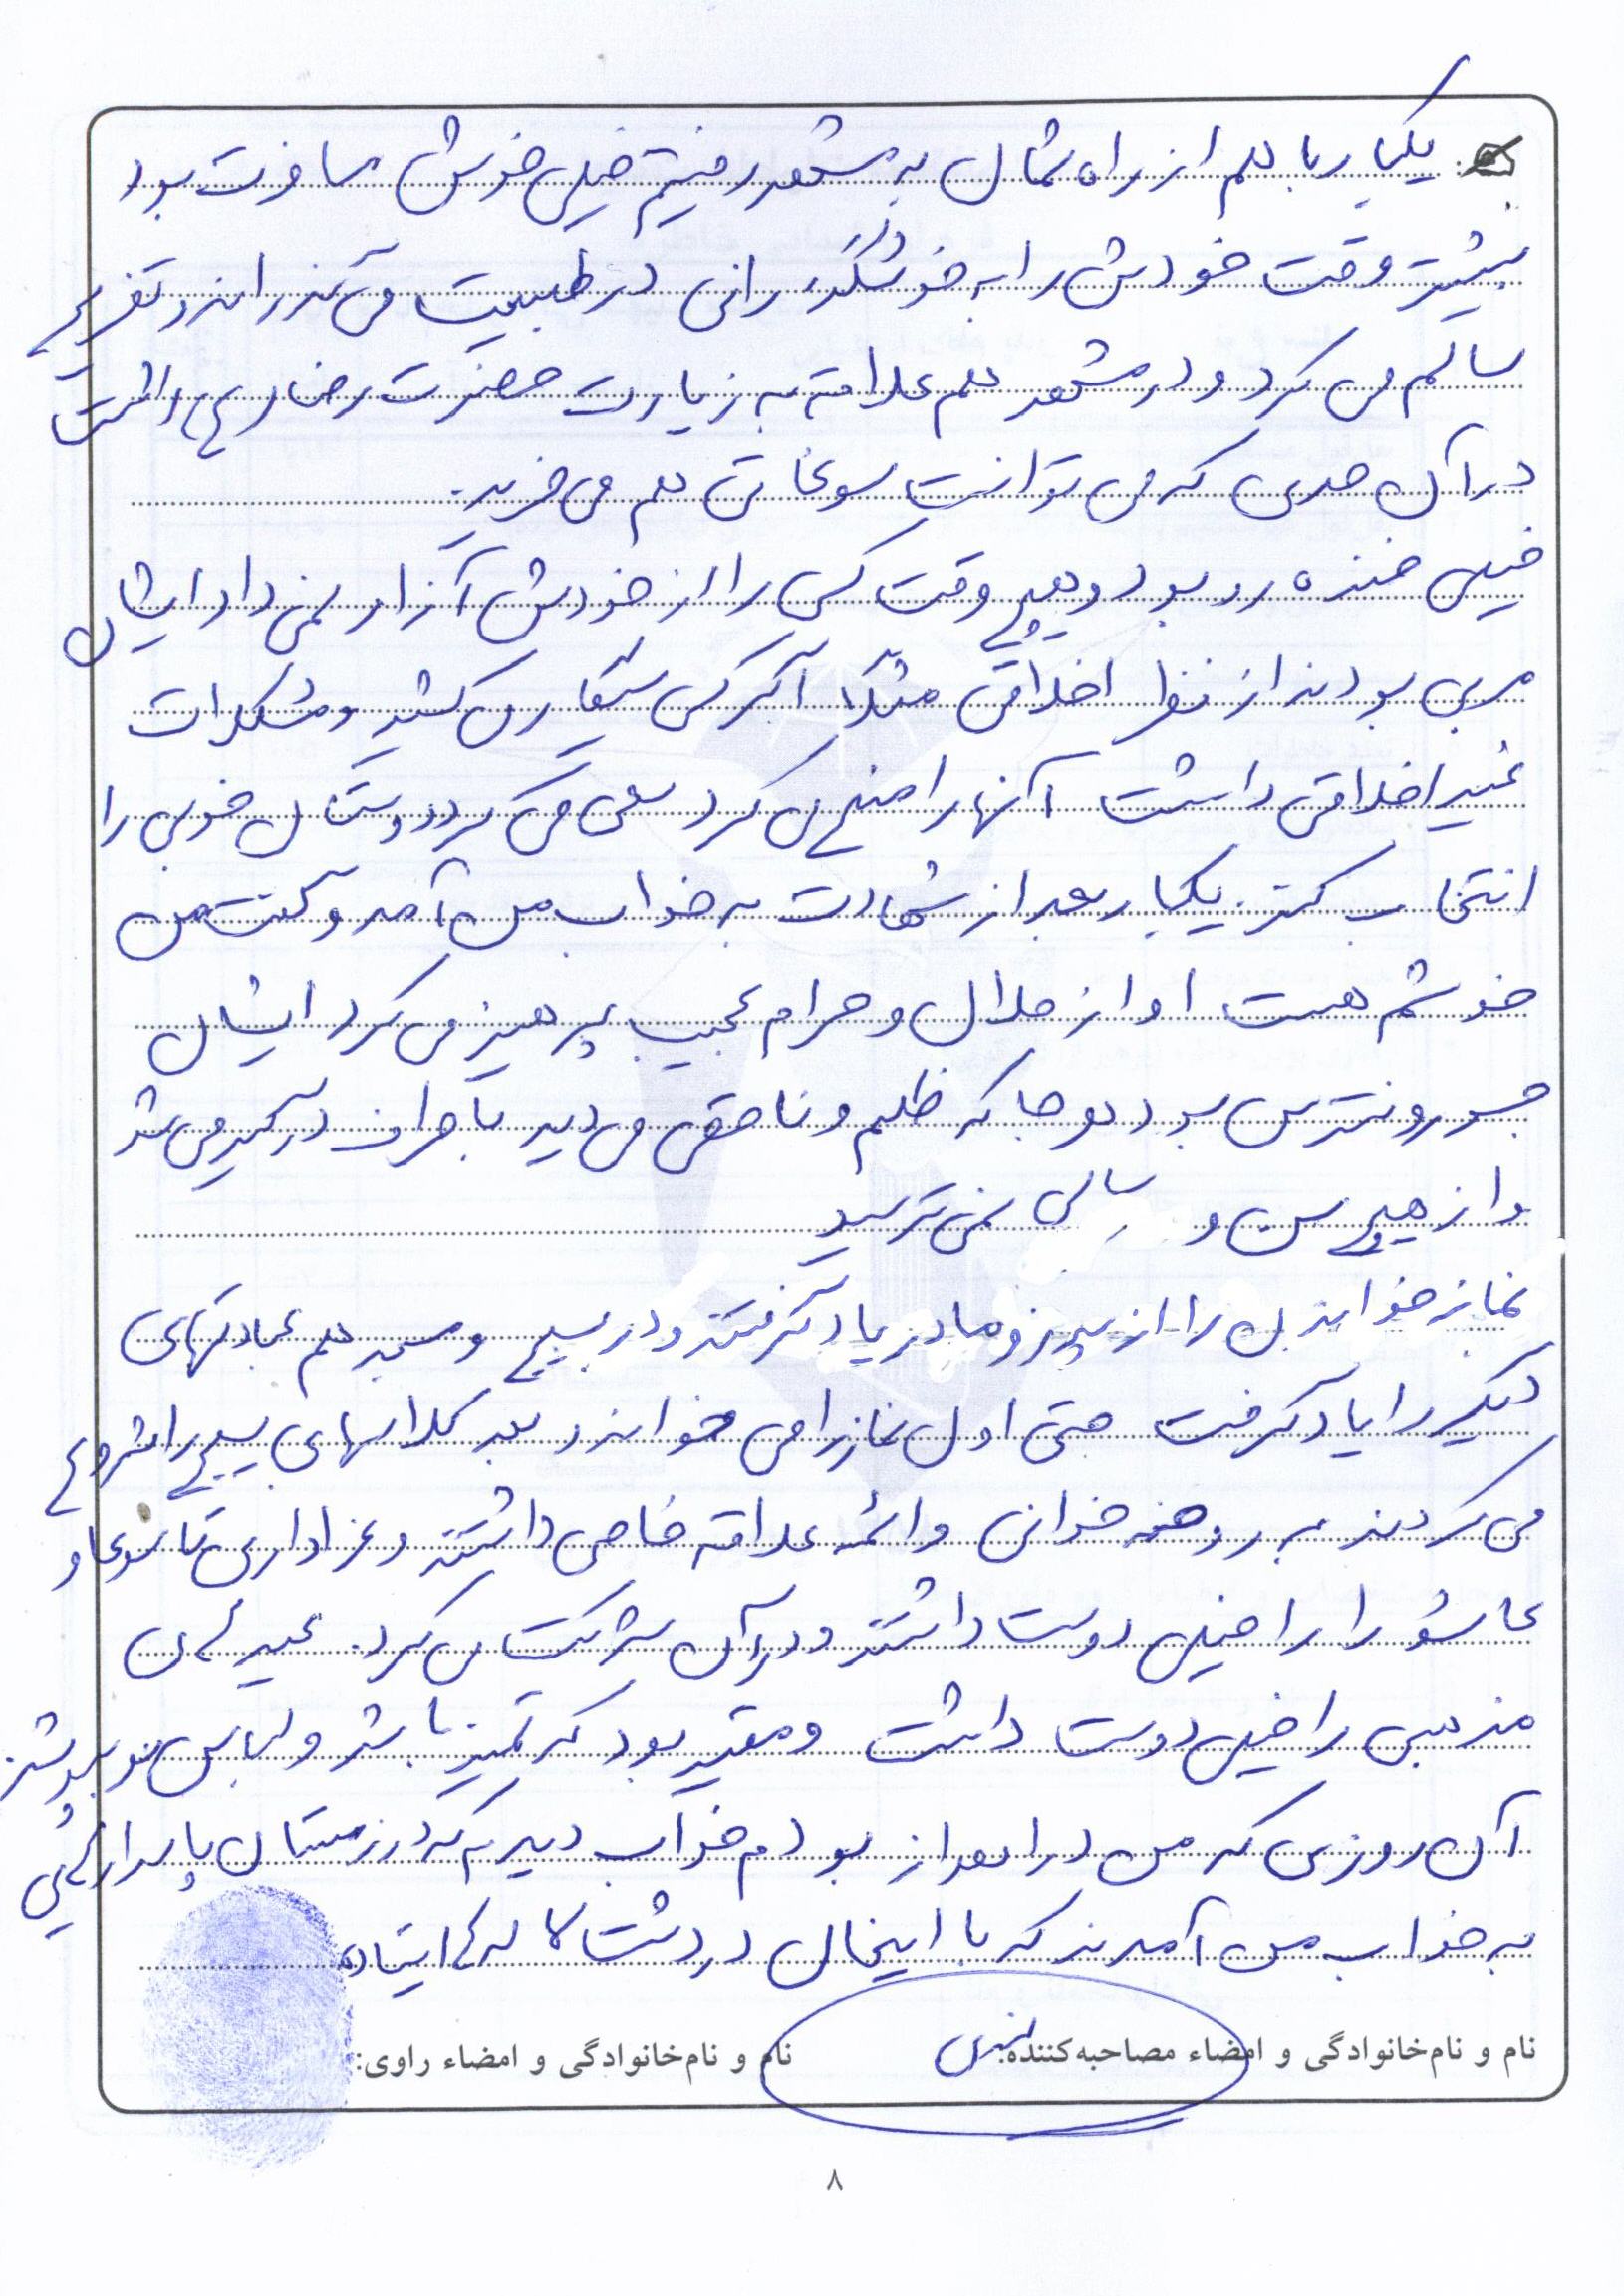 یکبار با هم از راه شمال به مشهد رفتیم خیلی خوش مسافرت بود
بیشتر وقت خودش را به خوشگذرانی در طبیعت می گذراند و تفریح
سالم می کرد و در مشهد هم علاقه به زیارت حضرت رضا (ع) داشت
در آن حدی که می توانست سوغاتی هم می خرید.
خیلی خنده رو بود و هیچ وقت کسی را از خودش آزار نمی داد ایشان
مربی بودند از نظر اخلاقی مثلا اگر کسی سیگار می کشید و مشکلات
غیر اخلاقی داشت آنها را منع می کرد سعی می کرد دوستان خوبی را
انتخاب کند. یکبار بعد از شهادت به خواب من آمد و گفت من
خوشم هست او از حلال و حرام عجیب پرهیز می کرد ایشان
جسور و نترس بود هر جا که ظلم و ناحقی می دید با طرف درگیر می شد
و از هیچ سن و سالی نمی ترسید
نماز خواندن را از پدر و مادر یاد گرفتند و در بسیج و مسجد هم عبادتهای
دیگر را یاد گرفت حتی اول نماز را می خواند و بعد کلاسهای بسیج را شروع
می کردند به روضه خوانی و ائمه علاقه خاصی داشتند و عزاداری تاسوعا و
عاشورا را خیلی دوست داشتند و در آن شرکت می کرد. عیدهای
مذهبی را خیلی دوست داشت و مقید بود که تمیز باشد و لباس نو بپوشد.
آن روزی که من در اهواز بودم خواب دیدم که در زمستان پاسدارهایی
به خواب من آمدند که با اینحال در دشت لاله ای ایستاده
نام و نام‌خانوادگی و امضاء مصاحبه‌کننده: نام و نام‌خانوادگی و امضاء راوی:
۸